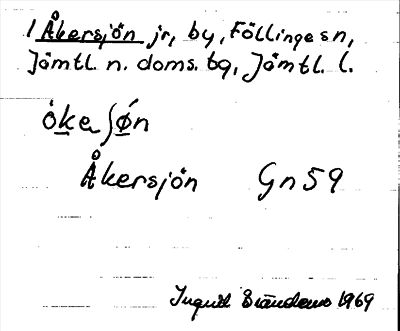 1 Åkersjön jr, by, Föllinge sn,
Jämtl. n. doms. tg, Jämtl. l.
òke ʃǿn
Åkersjön Gn 59
Ingrid 1969